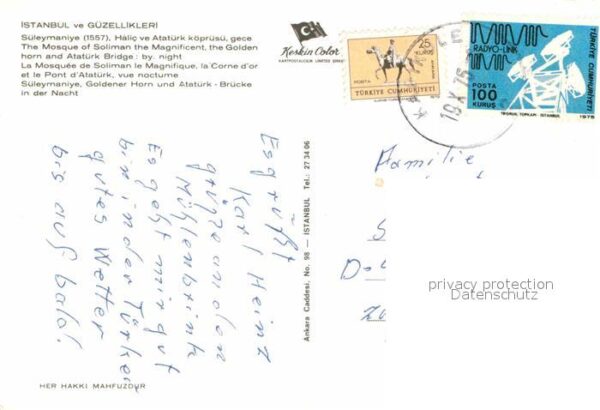 İSTANBUL ve GÜZELLİKLERİ
Süleymaniye (1557), Haliç ve Atatürk köprüsü, gece
The Mosque of Soliman the Magnificent, the Golden
horn and Atatürk Bridge : by. night
La Mosquée de Soliman le Magnifique, la Corne d'or
et le Pont d'Atatürk, vue nocturne
Süleymaniye, Goldener Horn und Atatürk - Brücke
in der Nacht
Keskin Color
KARTPOSTALCILIK LIMITED
25
KURUŞ
POSTA
TÜRKİYE CUMHURİYETİ
RADYO-LİNK
POSTA
100
KURUŞ
TÜRKİYE CUMHURİYETİ
1975
19 X 75
Es grüßt
Karl Heinz
grüße an den
Mühlenbrink
Es geht mir gut
bin in der Türkei
gutes Wetter
bis auf bald!
Ankara Caddesi, No. 98 — İSTANBUL Tel.: 27 34 06
Familie
privacy protection
Datenschutz
HER HAKKI MAHFUZDUR